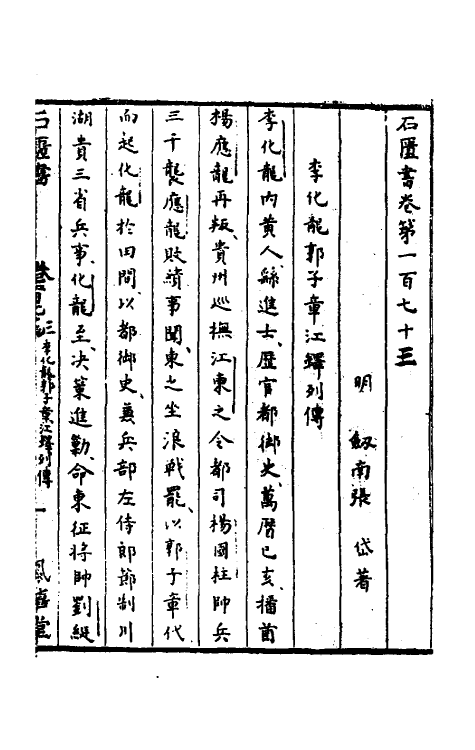 石匱書卷第一百七十三
明 劒南張 岱著
李化龍郭子章江鐸列傳
李化龍內黃人繇進士歷官都御史萬曆己亥播酋
楊應龍再叛貴州巡撫江東之令都司楊國柱帥兵
三千襲應龍敗績事聞東之坐浪戰罷以郭子章代
而起化龍於田間以都御史兼兵部左侍郎節制川
湖貴三省兵事化龍至决策進勦命東征將帥劉綎
石匱書 李化龍郭子章江鐸列傳 一 鳳嬉堂